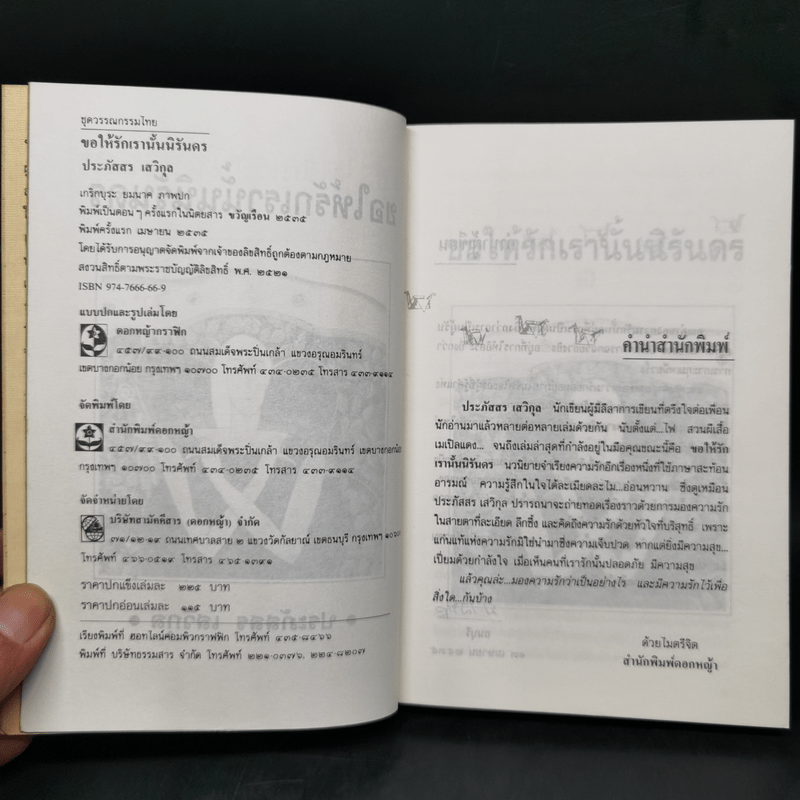 ชุดวรรณกรรมไทย
ขอให้รักเรานั้นนิรันดร
ประภัสสร เสวิกุล
เกริกบุระ ยมนาค ภาพปก
พิมพ์เป็นตอน ๆ ครั้งแรกในนิตยสาร ขวัญเรือน ๒๕๓๕
พิมพ์ครั้งแรก เมษายน ๒๕๓๕
โดยได้รับการอนุญาตจัดพิมพ์จากเจ้าของลิขสิทธิ์ถูกต้องตามกฎหมาย
สงวนลิขสิทธิ์ตามพระราชบัญญัติลิขสิทธิ์ พ.ศ. ๒๕๒๑
ISBN 974-7666-66-9
แบบปกและรูปเล่มโดย
ดอกหญ้ากราฟิก
๔๕๗/๙๙-๑๐๐ ถนนสมเด็จพระปิ่นเกล้า แขวงอรุณอมรินทร์
เขตบางกอกน้อย กรุงเทพฯ ๑๐๗๐๐ โทรศัพท์ ๔๓๔-๐๒๓๕ โทรสาร ๔๓๓-๙๑๑๔
จัดพิมพ์โดย
สำนักพิมพ์ดอกหญ้า
๔๕๗/๙๙-๑๐๐ ถนนสมเด็จพระปิ่นเกล้า แขวงอรุณอมรินทร์ เขตบางกอกน้อย
กรุงเทพฯ ๑๐๗๐๐ โทรศัพท์ ๔๓๔-๐๒๓๕ โทรสาร ๔๓๓-๙๑๑๔
จัดจำหน่ายโดย
บริษัทสามัคคีสาร (ดอกหญ้า) จำกัด
๗๑/๑๒-๑๙ ถนนเทศบาลสาย ๒ แขวงวัดกัลยาณ์ เขตธนบุรี กรุงเทพฯ ๑๐๖๐๐
โทรศัพท์ ๔๖๖-๐๕๑๙ โทรสาร ๔๖๕-๑๓๙๑
ราคาปกแข็งเล่มละ ๒๒๕ บาท
ราคาปกอ่อนเล่มละ ๑๑๕ บาท
เรียงพิมพ์ที่ ฮอทไลน์คอมพิวกราฟฟิก โทรศัพท์ ๔๓๕-๘๔๖๖
พิมพ์ที่ บริษัทธรรมสาร จำกัด โทรศัพท์ ๒๒๑-๐๓๗๖, ๒๒๔-๘๒๐๗
คำนำสำนักพิมพ์
ประภัสสร เสวิกุล นักเขียนผู้มีลีลาการเขียนที่ตรึงใจต่อเพื่อน
นักอ่านมาแล้วหลายต่อหลายเล่มด้วยกัน นับตั้งแต่...ไฟ สวนผีเสื้อ
เมเปิลแดง... จนถึงเล่มล่าสุดที่กำลังอยู่ในมือคุณขณะนี้คือ ขอให้รัก
เรานั้นนิรันดร นวนิยายจำเรียงความรักอีกเรื่องหนึ่งที่ใช้ภาษาสะท้อน
อารมณ์ ความรู้สึกในใจได้ละเมียดละไม...อ่อนหวาน ซึ่งดูเหมือน
ประภัสสร เสวิกุล ปรารถนาจะถ่ายทอดเรื่องราวด้วยการมองความรัก
ในสายตาที่ละเอียด ลึกซึ้ง และคิดถึงความรักด้วยหัวใจที่บริสุทธิ์ เพราะ
แก่นแท้แห่งความรักมิใช่นำมาซึ่งความเจ็บปวด หากแต่ยิ่งมีความสุข...
เปี่ยมด้วยกำลังใจ เมื่อเห็นคนที่เรารักนั้นปลอดภัย มีความสุข
แล้วคุณล่ะ...มองความรักว่าเป็นอย่างไร และมีความรักไว้เพื่อ
สิ่งใด...กันบ้าง
ด้วยไมตรีจิต
สำนักพิมพ์ดอกหญ้า